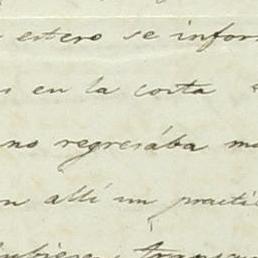 estero se infor
en la costa
no regresába m
n allí un practi
hubiera transcu